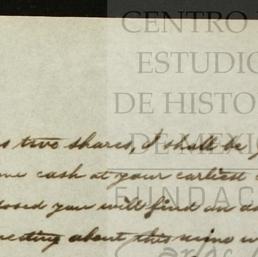 CENTRO
ESTUDIO
DE HISTO
DE MEXIC
FUNDAC
s two shares, I shall be
me cash at your earliest
osed you will find an
eeting about this mine w